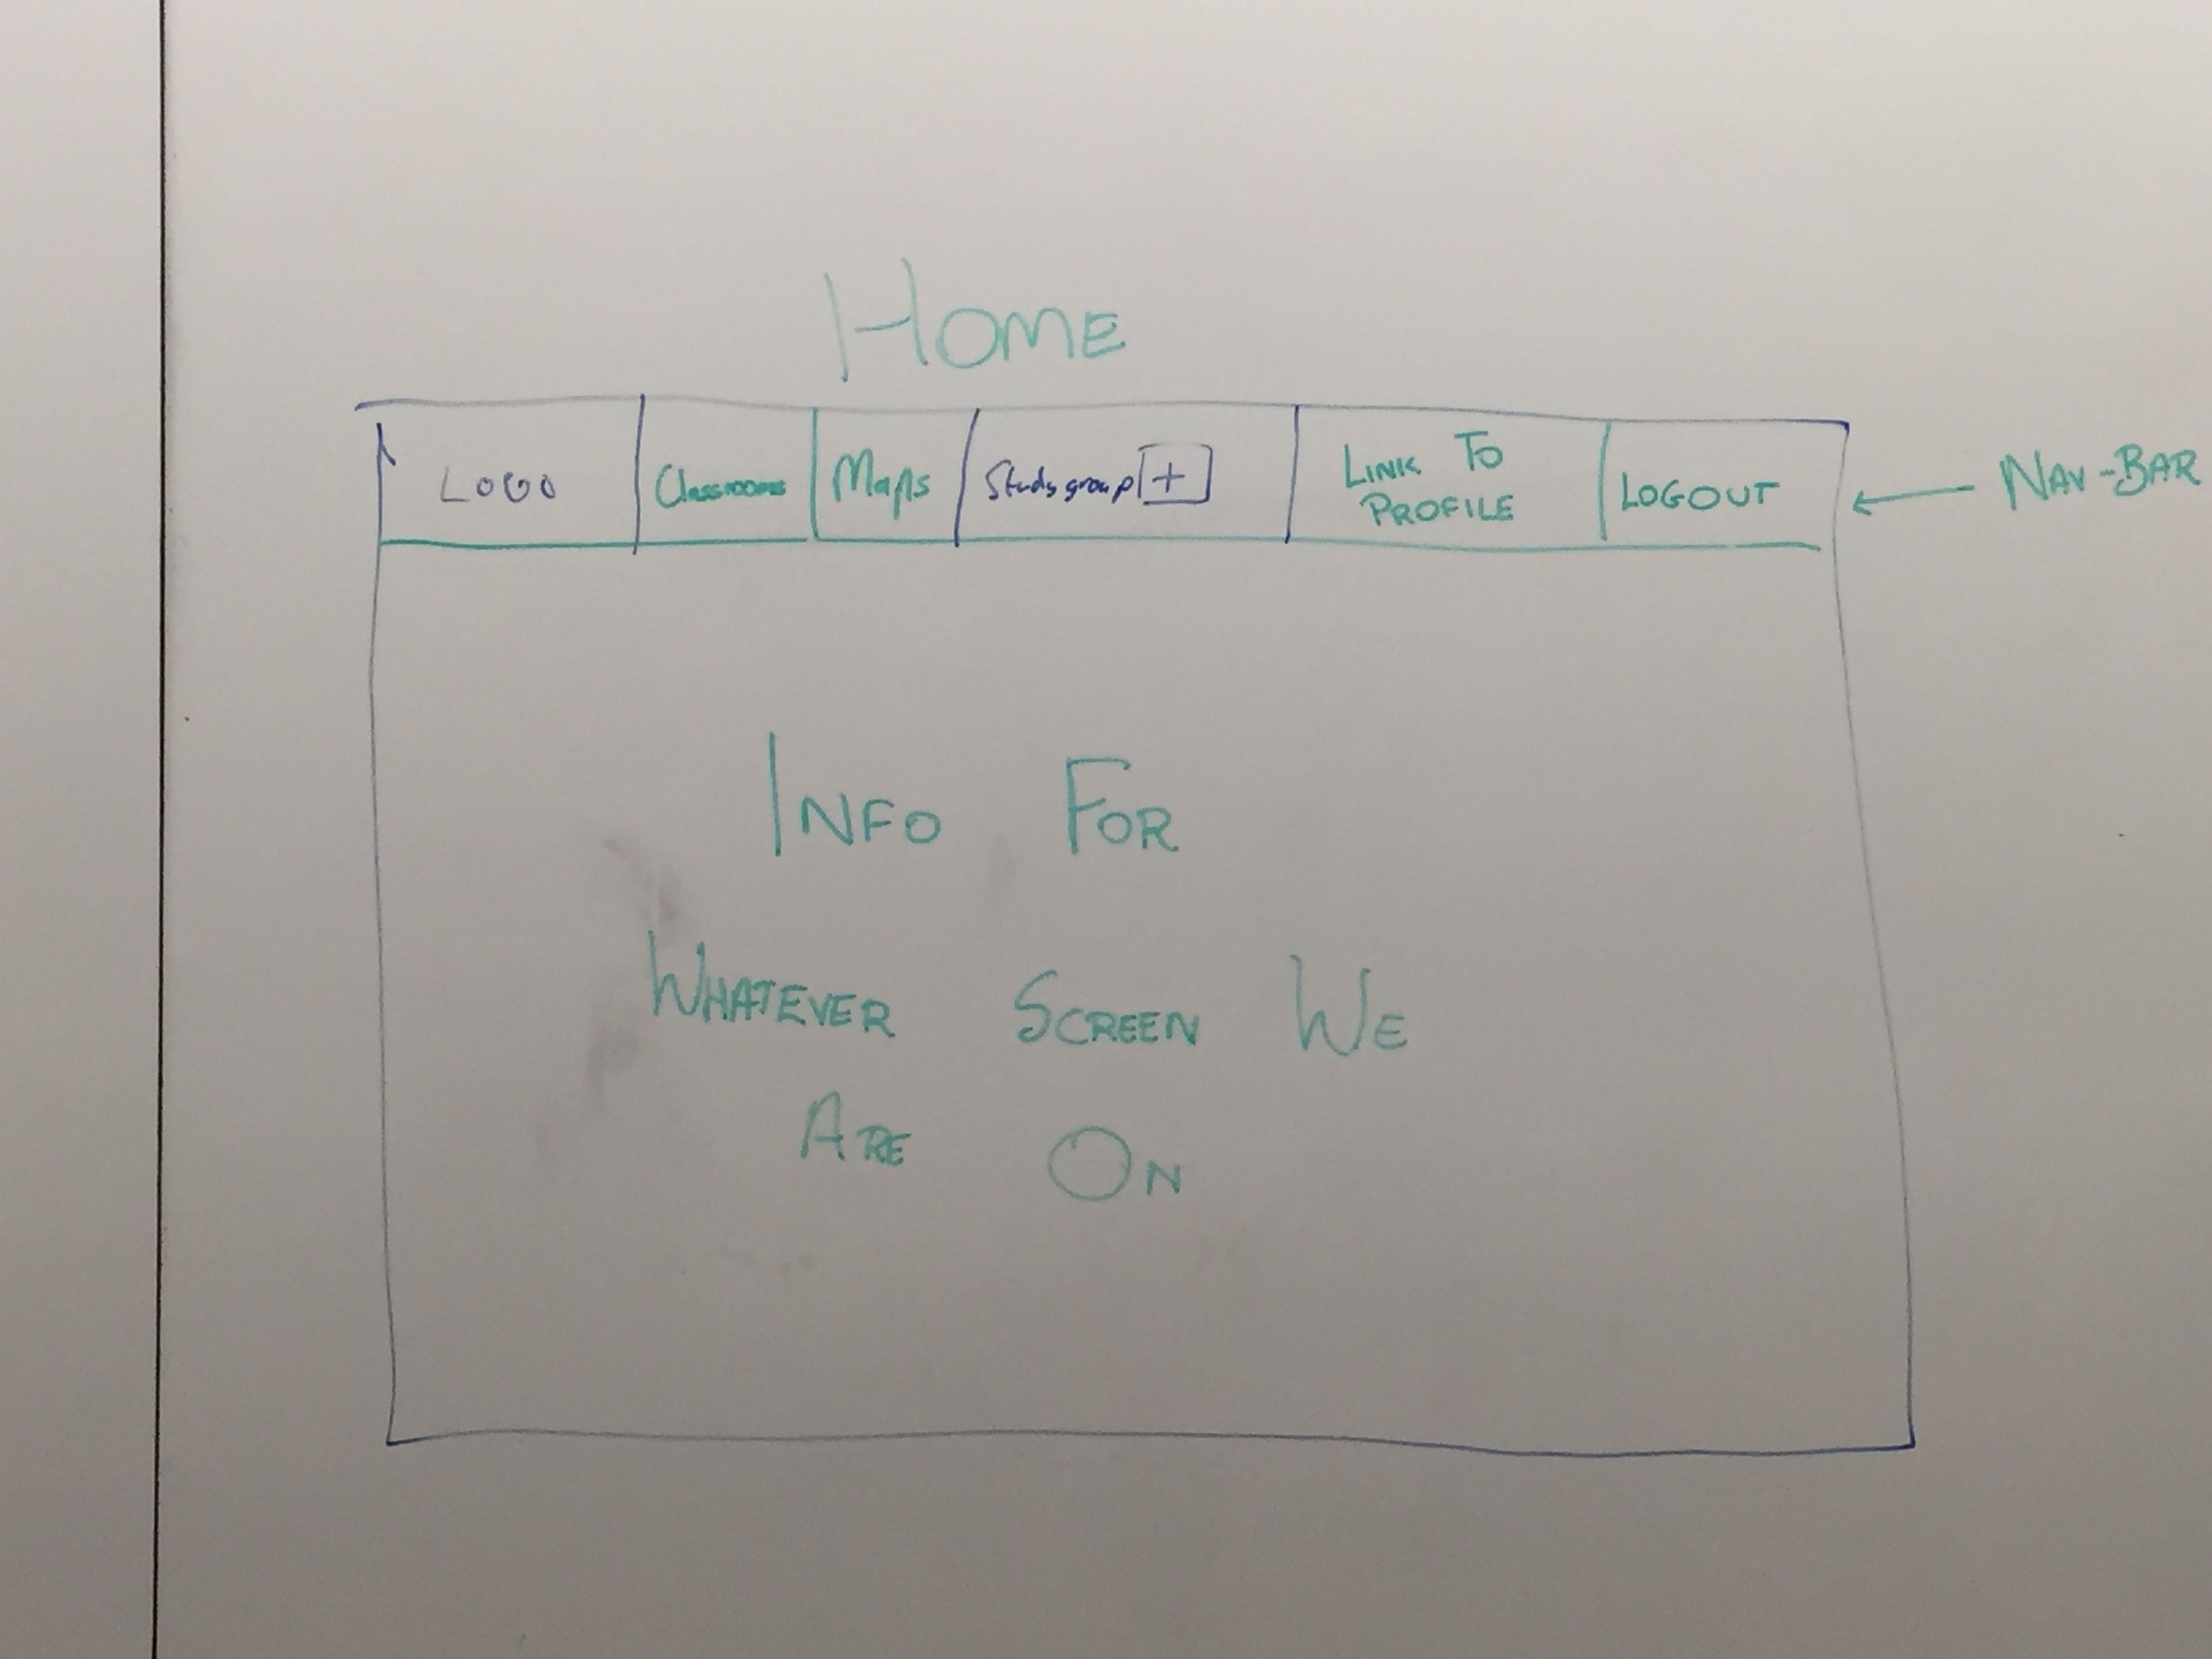 HOME
LOGO
Classrooms
Maps
Study group +
LINK TO
PROFILE
LOGOUT
NAV-BAR
INFO FOR
WHATEVER SCREEN WE
ARE ON